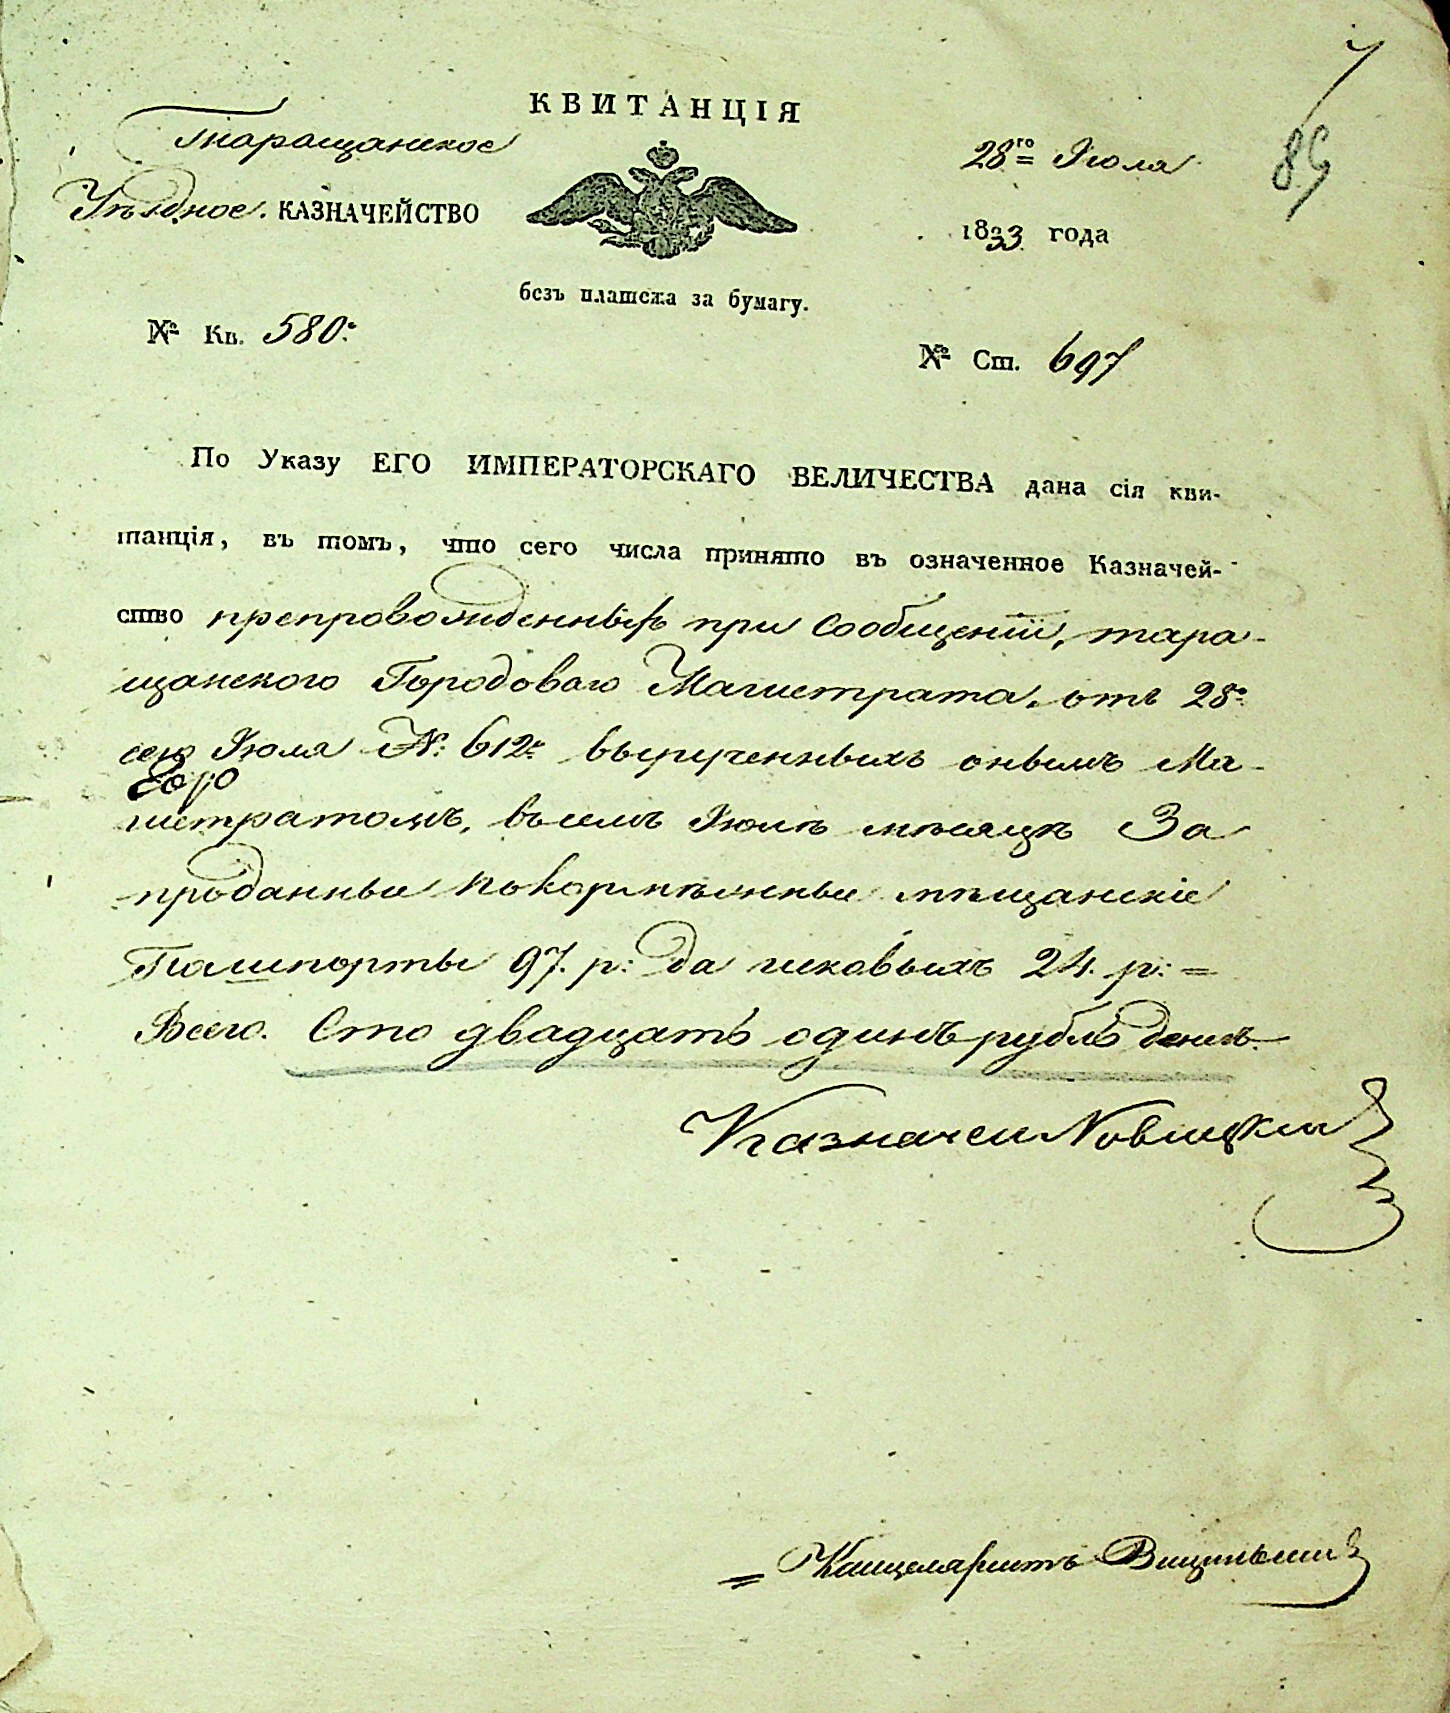 КВИТАНЦІЯ
Таращанское
Уѣздное. КАЗНАЧЕЙСТВО
28го Іюля
89
1833 года
безъ платежа за бумагу.
№ Кв. 580.
№ Ст. 697
По Указу ЕГО ИМПЕРАТОРСКАГО ВЕЛИЧЕСТВА дана сія кви-
танція, въ томъ, что сего числа принято въ означенное Казначей-
ство препровожденныхъ при сообщеніи, тара-
щанского Городоваго Магистрата, отъ 28го
сего Іюля №: 612. вырученныхъ онымъ Ма-
гистратомъ, въ семъ Іюлѣ мѣсяцѣ За
проданные покормѣжные мѣщанскіе
Пашпорты 97. р: да исковыхъ 24. р: =
Всего. Сто двадцать одинъ рубль денегъ.
Казначеи Новицкии
= Канцеляристъ